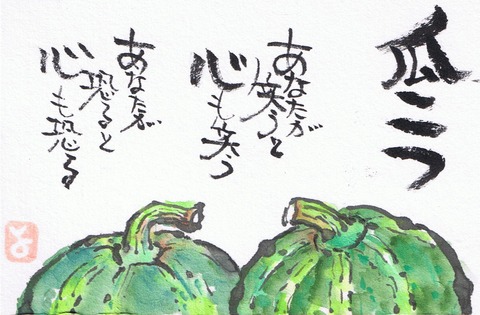 瓜二つ
あなたが
笑うと
心も笑う
あなたが
恐ると
心も恐る